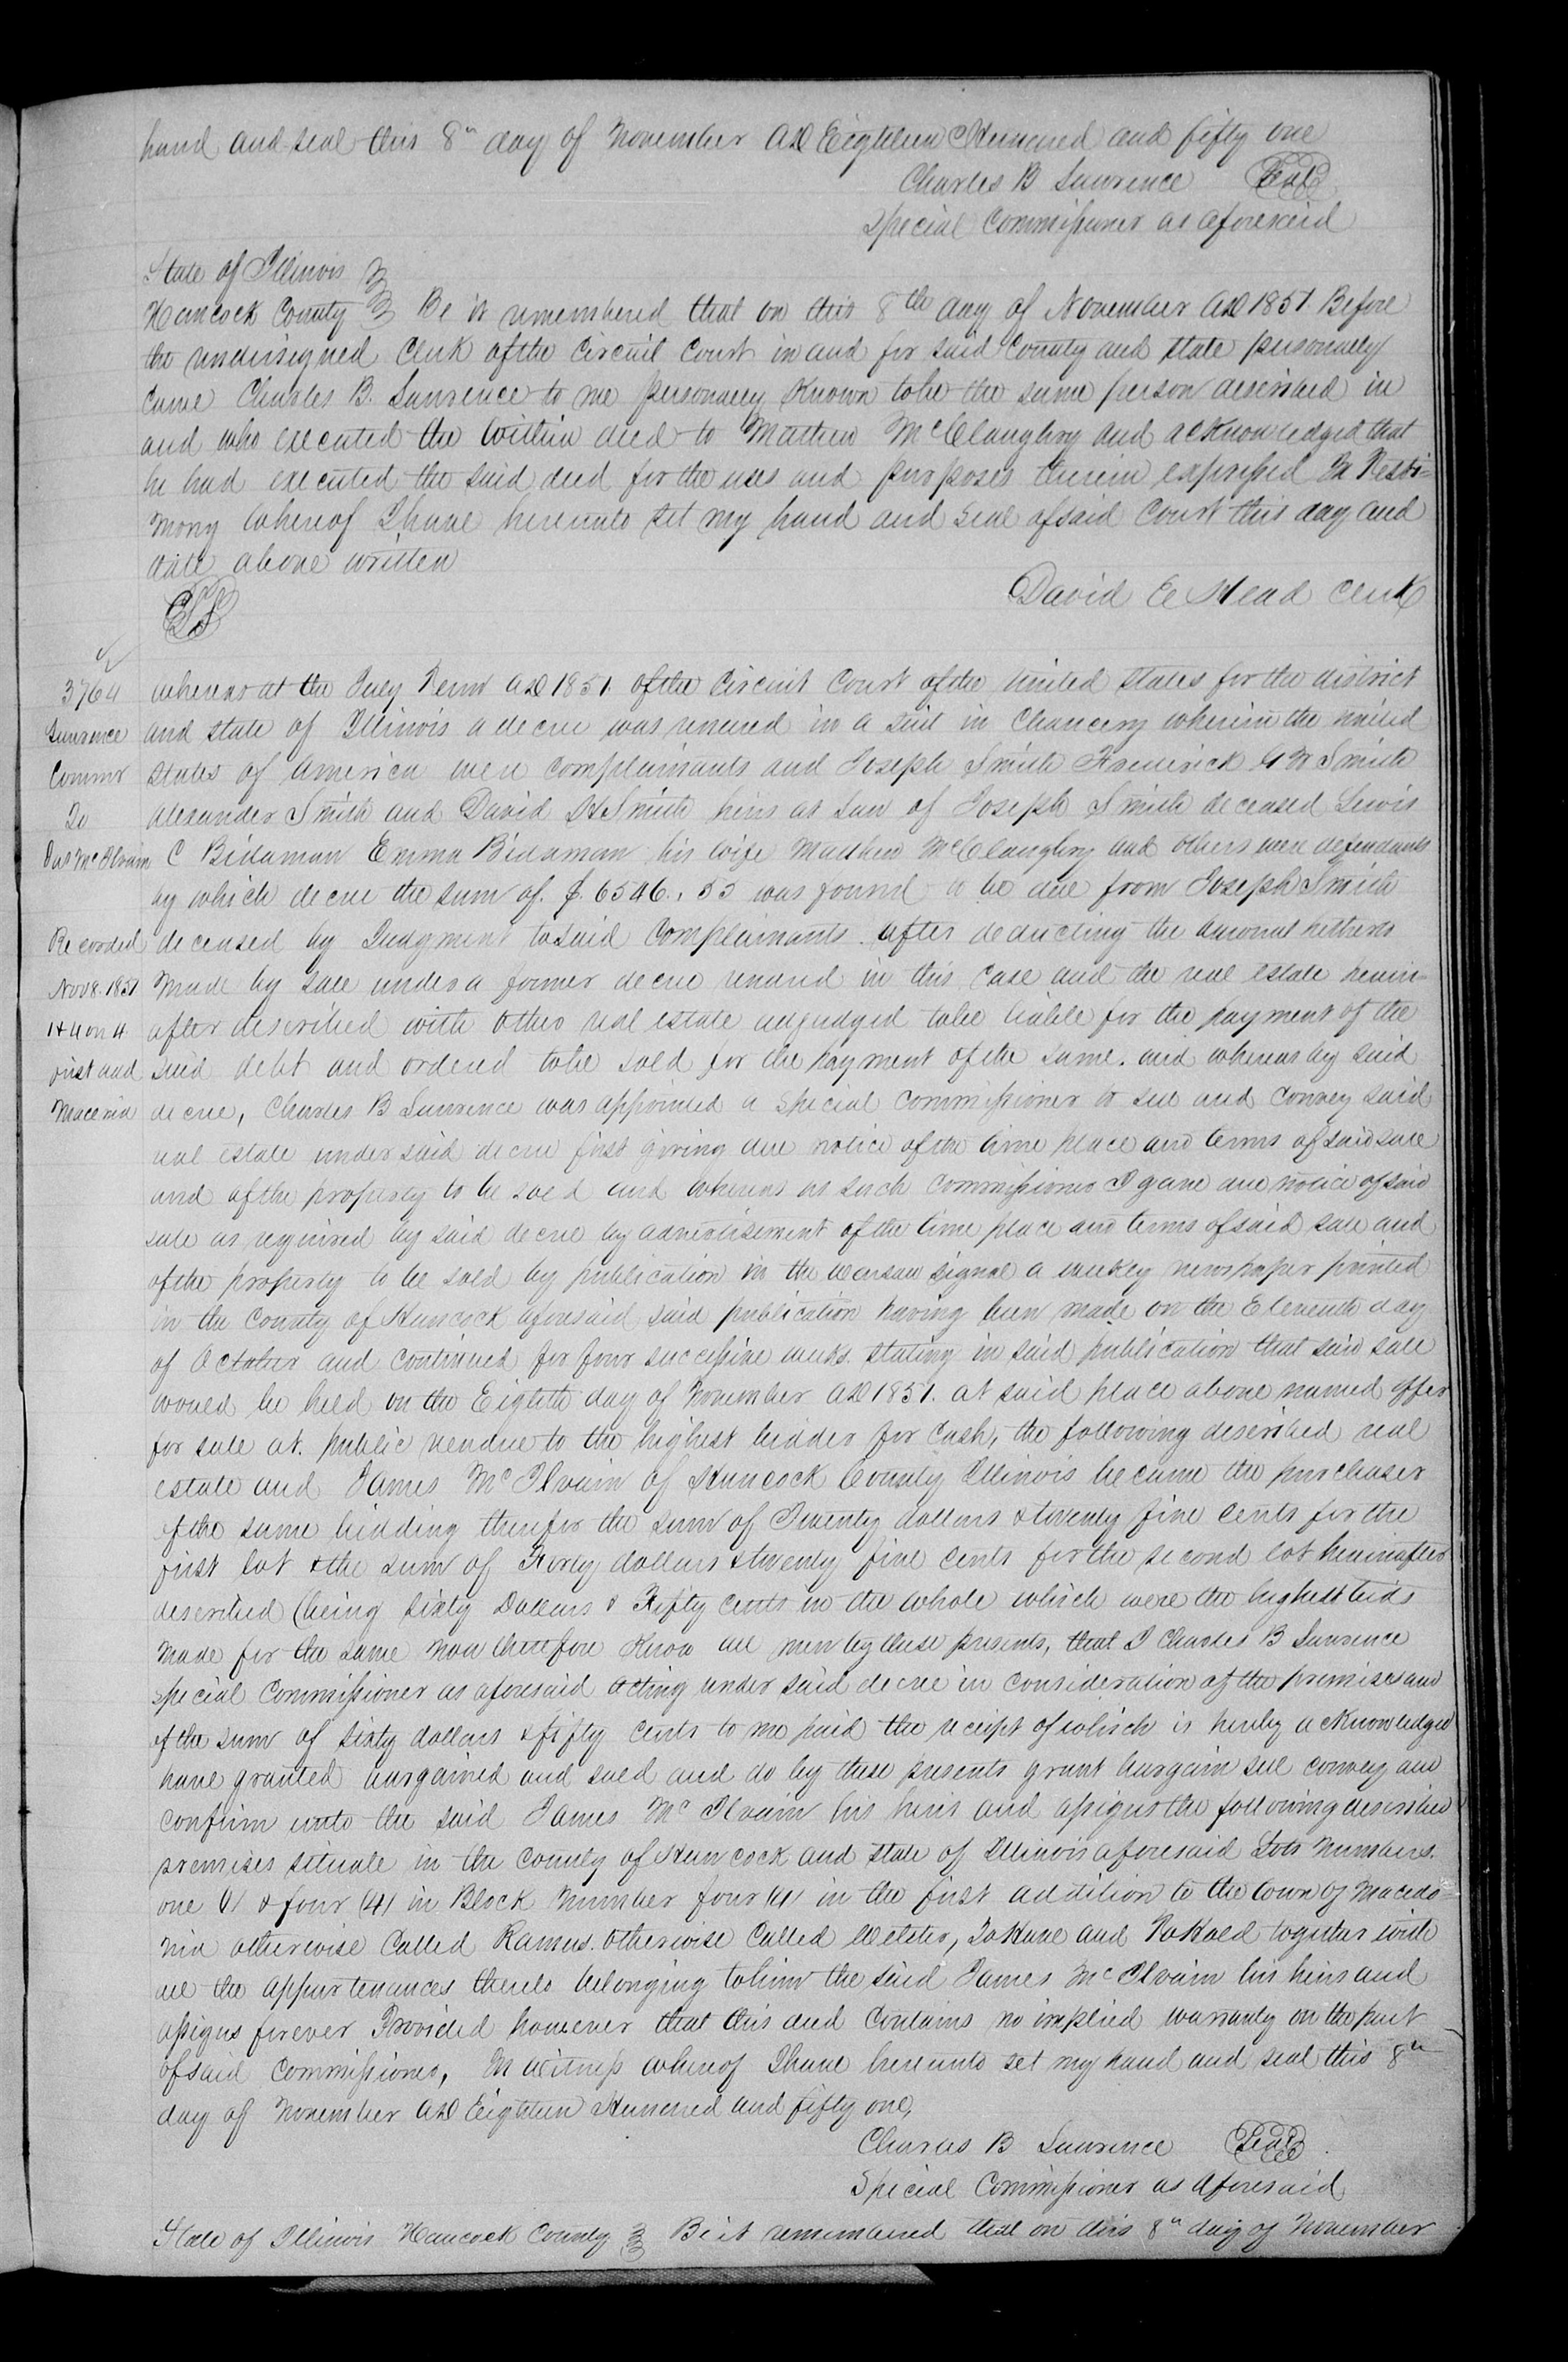 hand and seal this 8th day of November AD Eighteen Hundred and fifty one
Charles B Lawrence Seal
Special Commissioner as aforesaid
State of Illinois
Hancock County Be it remembered that on this 8th day of November AD 1851. Before
the undersigned Clerk of the Circuit Court in and for said County and state personally
came Charles B. Lawrence to me personally known to be the same person described in
and who executed the within deed to Mathew McClaughry and acknowledged that
he had executed the said deed for the uses and purposes therein expressed In Testi=
mony Whereof I have hereunto set my hand and seal of said Court this day and
date above written
David E Head Clerk
LS
3764
Lawrence
Commr
To
Jas McIlvain
Recorded
Nov 8. 1851
1 & 4 on 4
first add
Macednia
whereas at the July Term AD 1851. of the Circuit Court of the United States for the district
and state of Illinois a decree was rendered in a suit in Chancery wherein the united
states of America were complainants and Joseph Smith Frederick G W Smith
Alexander Smith and David H Smith heirs at Law of Joseph Smith deceased Lewis
C Bidaman Emma Bidaman his wife Mathew McClaughry and others were defendants
by which decree the sum of $.6546.,55 was found to be due from Joseph Smith
deceased by Judgment to said Complainants after deducting the amount hetherto
made by sale under a former decree renderd in this case and the real estate herein=
after described with other real estate adjudged to be liable for the payment of the
said debt and ordered to be sold for the payment of the same. and whereas by said
decree, Charles B Lawrence was appointed a special commissioner to sell and convey said
real estate under said decree first giving due notice of the time place and terms of said sale
and of the property to be sold and whereas as such Commissioner I gave due notice of said
sale as required by said decree by advertisement of the time place and terms of said sale and
of the property to be sold by publication in the Warsaw signal a weekly newspaper printed
in the County of Hancock aforesaid said publication having been made on the Eleventh day
of October and continued for four successive weeks. stating in said publication that said sale
would be held on the Eighth day of November AD 1851. at said place above named offer
for sale at. public vendue to the highest bidder for Cash, the following described real
estate and James McIlvain of Hancock County Illinois became the purchaser
of the same bidding therefor the sum of Twenty dollars & twenty five cents for the
first lot & the sum of Forty dollars & twenty five cents for the second lot hereinafter
described (being Sixty Dollars & Fifty cents in the whole which were the highest bids
made for the same now therefore Know all men by these presents, that I Charles B Lawrence
special Commissioner as aforesaid acting under said decree in consideration of the premises and
of the sum of sixty dollars & fifty cents to me paid the receipt of which is hereby acknowledged
have granted bargained and sold and do by these presents grant bargain sell convey and
confirm unto the said James McIlvain his heirs and assigns the following described
premises situate in the county of Hancock and state of Illinois aforesaid Lots Numbers.
one (1) & four (4) in Block Number four (4) in the first addition to the town of Macedo=
nia otherwise Called Ramus. otherwise Called Webster, To Have and To Hold together with
all the appurtenances thereto belonging to him the said James McIlvain his heirs and
assigns forever Provided however that this deed contains no implied warranty on the part
of said Commissioner, In Witness whereof I have hereunto set my hand and seal this 8th
day of November AD Eighteen Hundred and fifty one,
Charles B Lawrence Seal
Special Commissioner as Aforesaid
State of Illinois Hancock County Be it remembered that on this 8th day of November